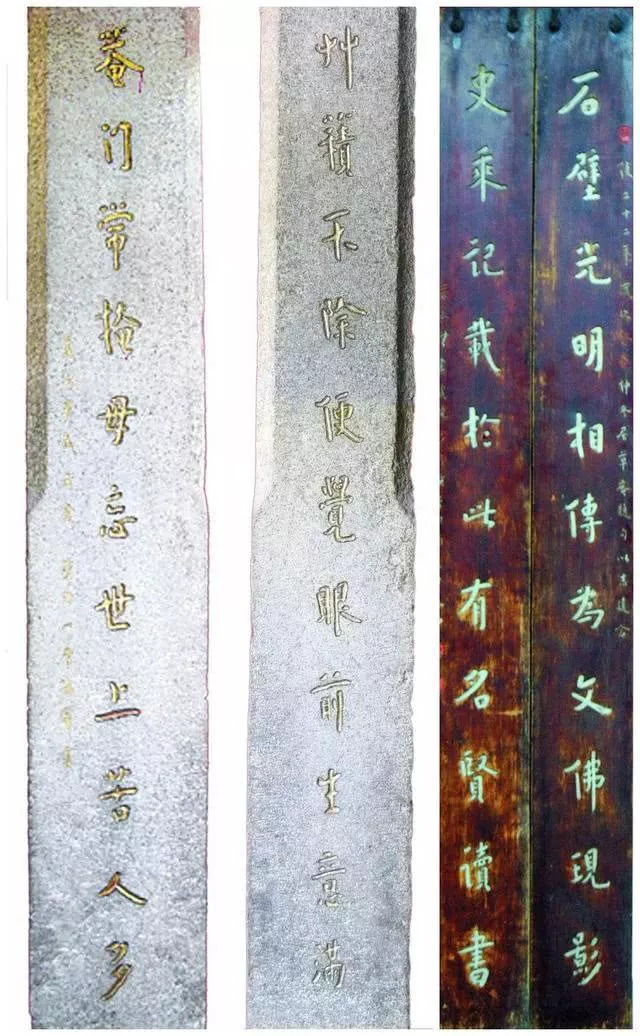 石壁光明相傳為文佛現影
史乘記載於此有名賢讀書
艸積不除便覺眼前生意滿
菴门常掩毋忘世上苦人多